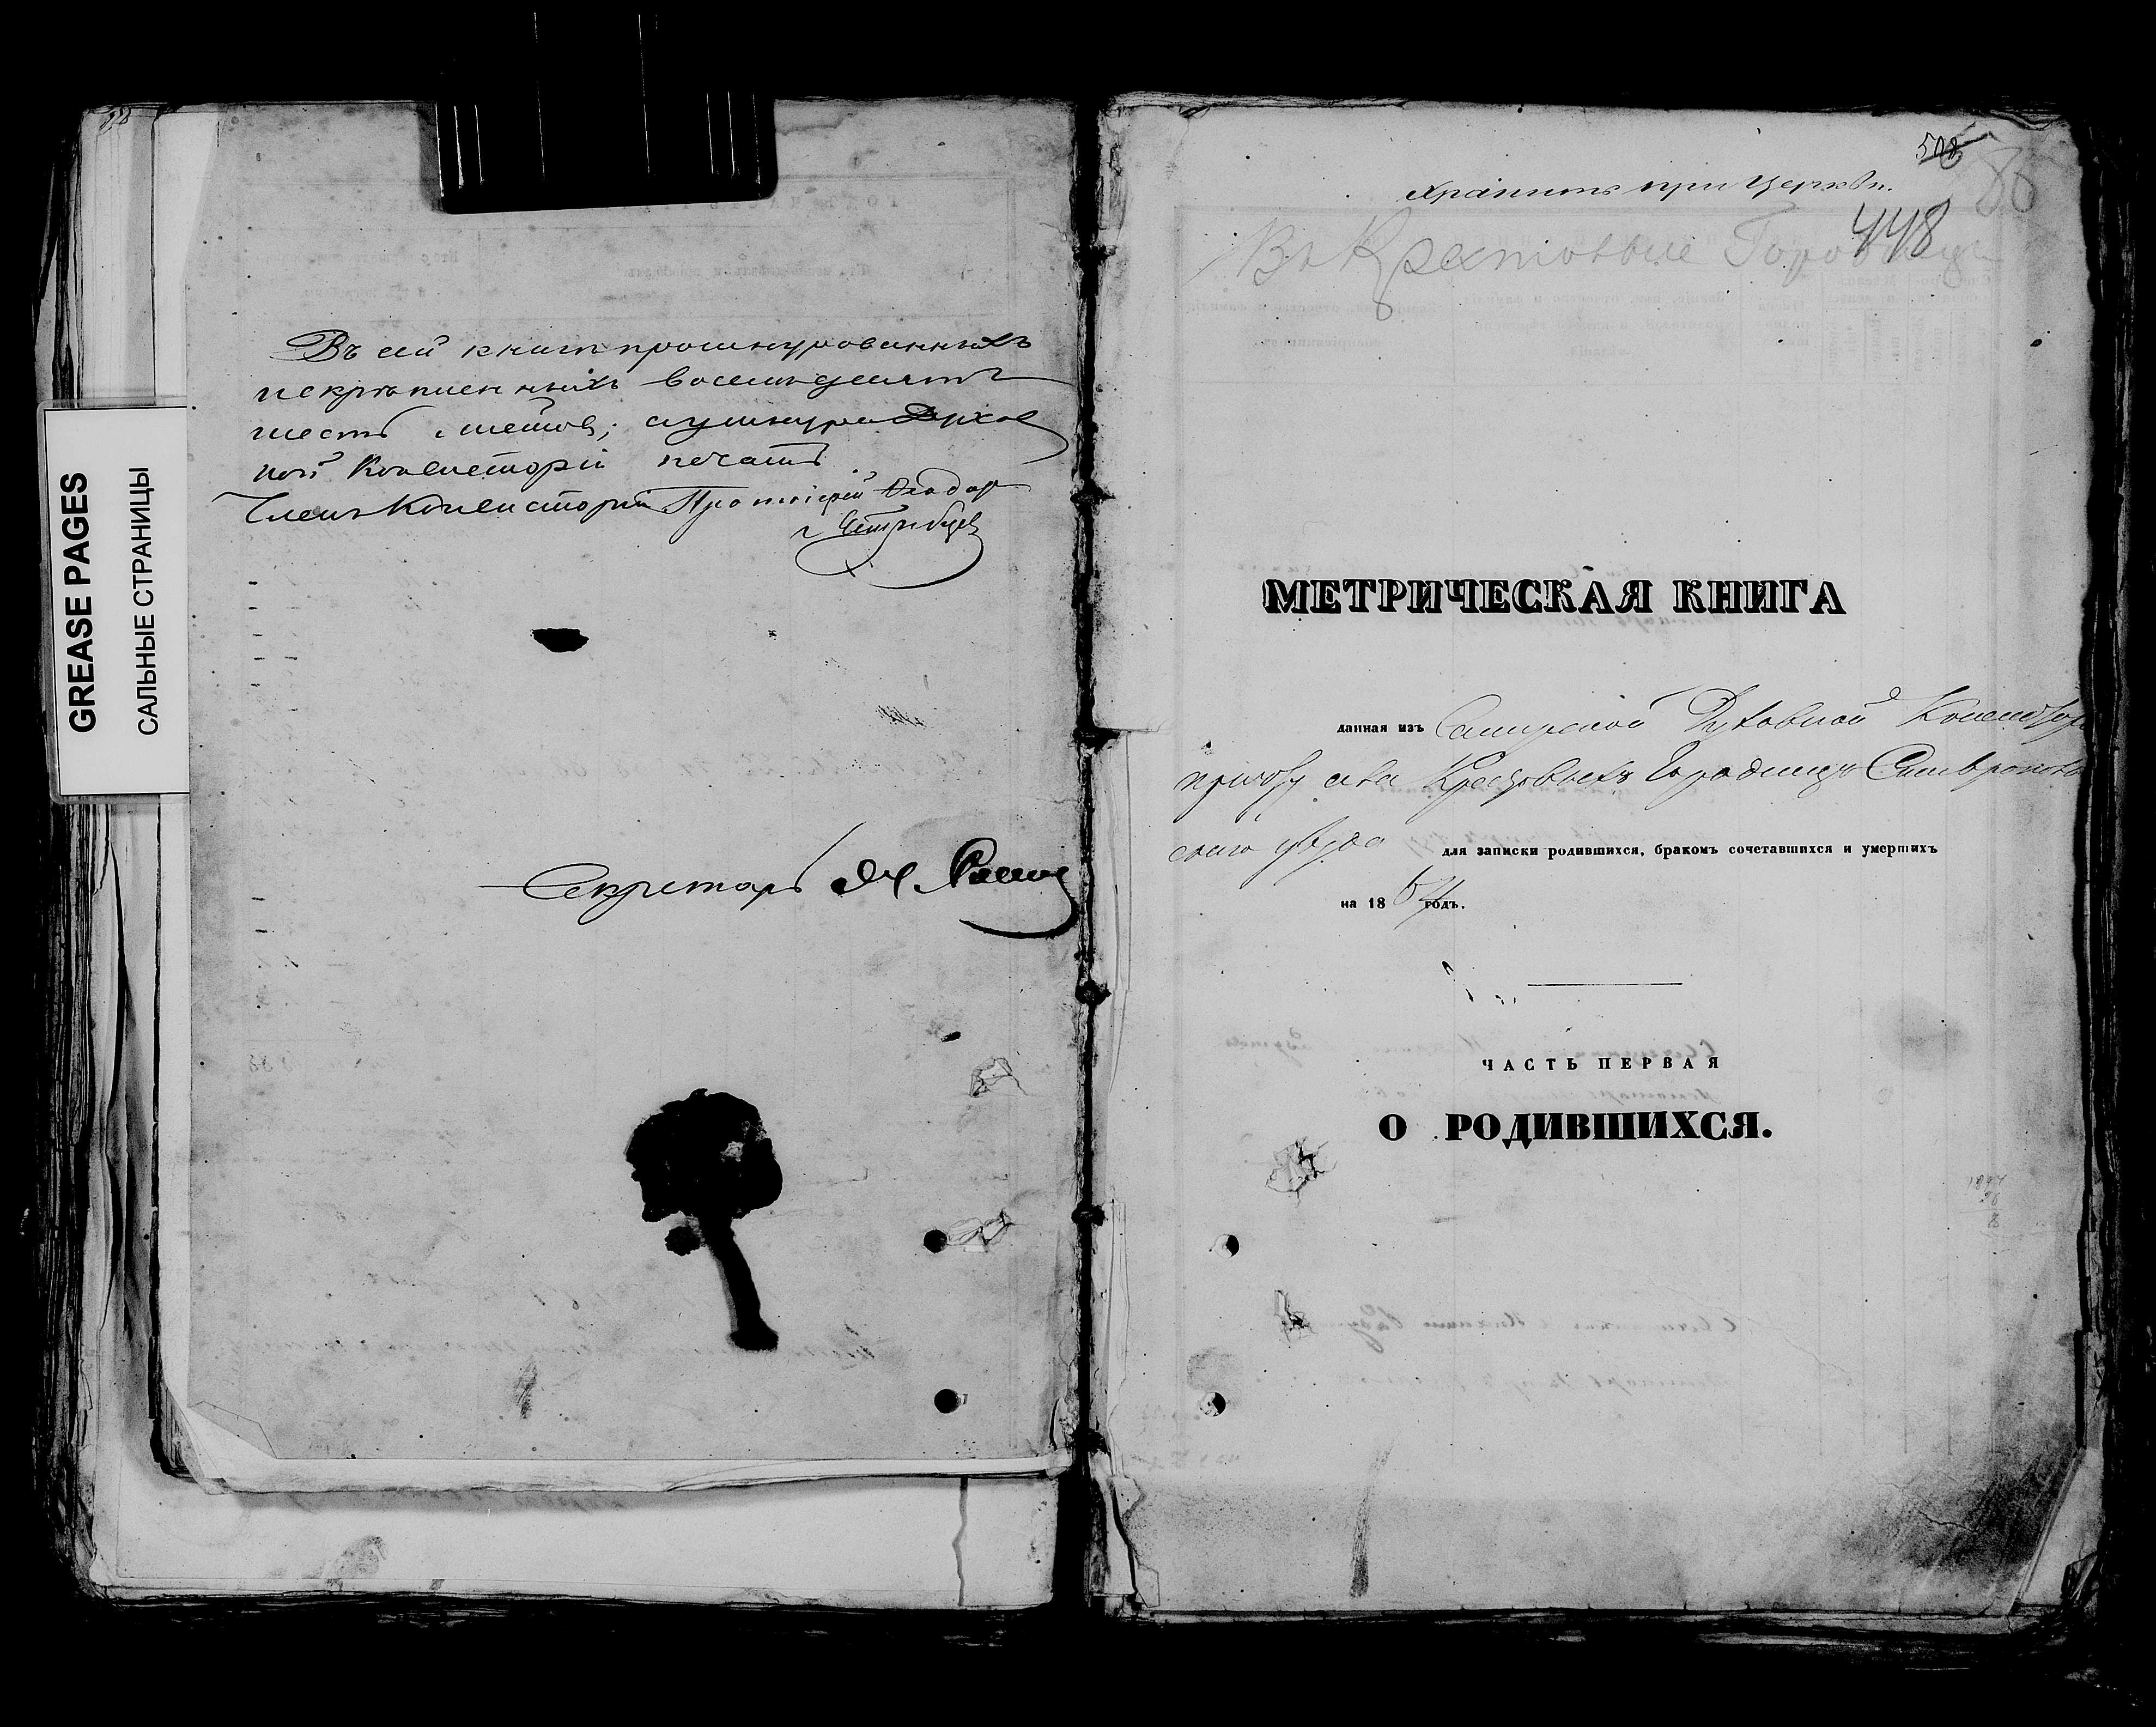 GREASE PAGES
САЛЬНЫЕ СТРАНИЦЫ
Въ сей книгѣ прошнурованныхъ
и скрѣпленныхъ восемьдесятъ
шесть листовъ; а у шнура Духов
ной Консисторіи печать.
Членъ Консисторіи Протоіерей Ѳеодор
Секретарь
508
Хранить при Церкви.
86
448
Въ Крестовые Городищи
МЕТРИЧЕСКАЯ КНИГА
данная изъ Симбирской Духовной Консистор
причту села Крестовыхъ Городищъ Ставрополь
скаго уѣзда для записки родившихся, бракомъ сочетавшихся и умершихъ
на 18 годъ.
ЧАСТЬ ПЕРВАЯ
О РОДИВШИХСЯ.